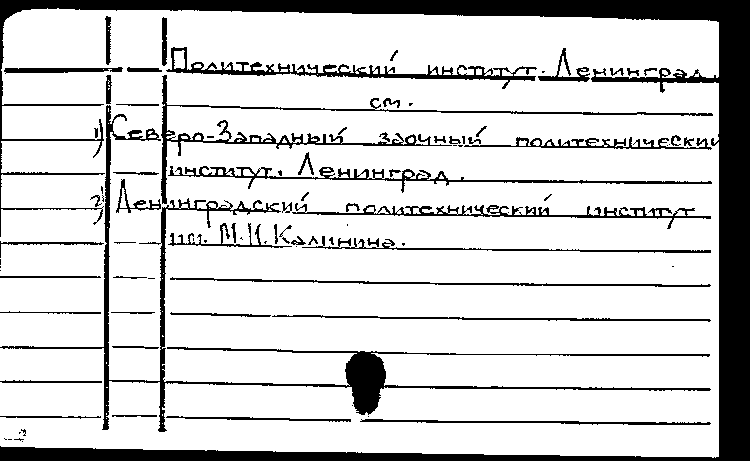 Политехнический институт. Ленинград.
см.
1) Северо-Западный заочный политехнический
институт. Ленинград.
2) Ленинградский политехнический институт
им. М.И. Калинина.